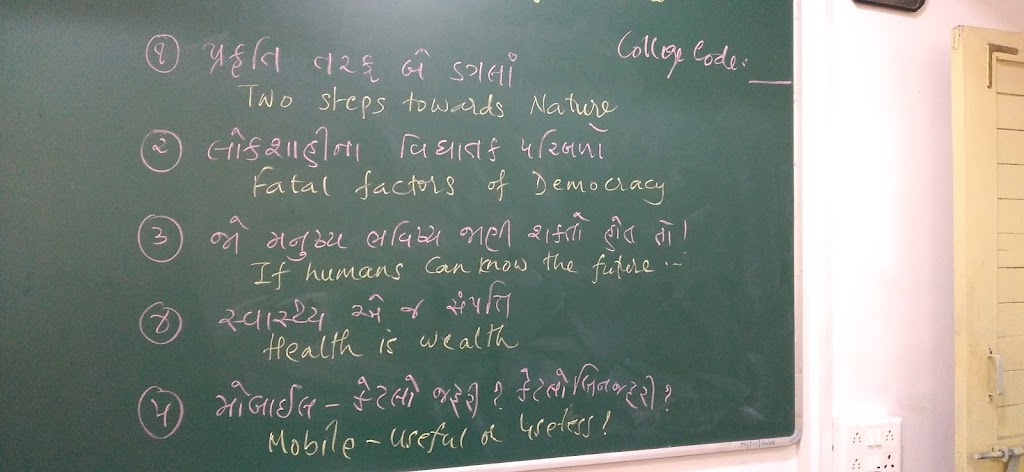 College Code: __
૧ પ્રકૃતિ તરફ બે ડગલાં
Two steps towards Nature
૨ લોકશાહીના વિઘાતક પરિબળો
Fatal factors of Democracy
૩ જો મનુષ્ય ભવિષ્ય જાણી શકતો હોત તો!
If humans can know the future ...
૪ સ્વાસ્થ્ય એ જ સંપતિ
Health is wealth
૫ મોબાઈલ - કેટલો જરૂરી? કેટલો બિનજરૂરી?
Mobile - useful or useless!